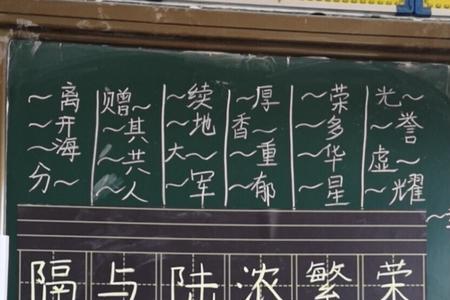 ～离
～开
～海
分～
赠～
～其
～共
～人
～续
～地
大～
～军
～厚
香～
～重
～郁
～荣
～多
～华
～星
光～
～誉
虚～
～耀
隔与陆浓繁荣